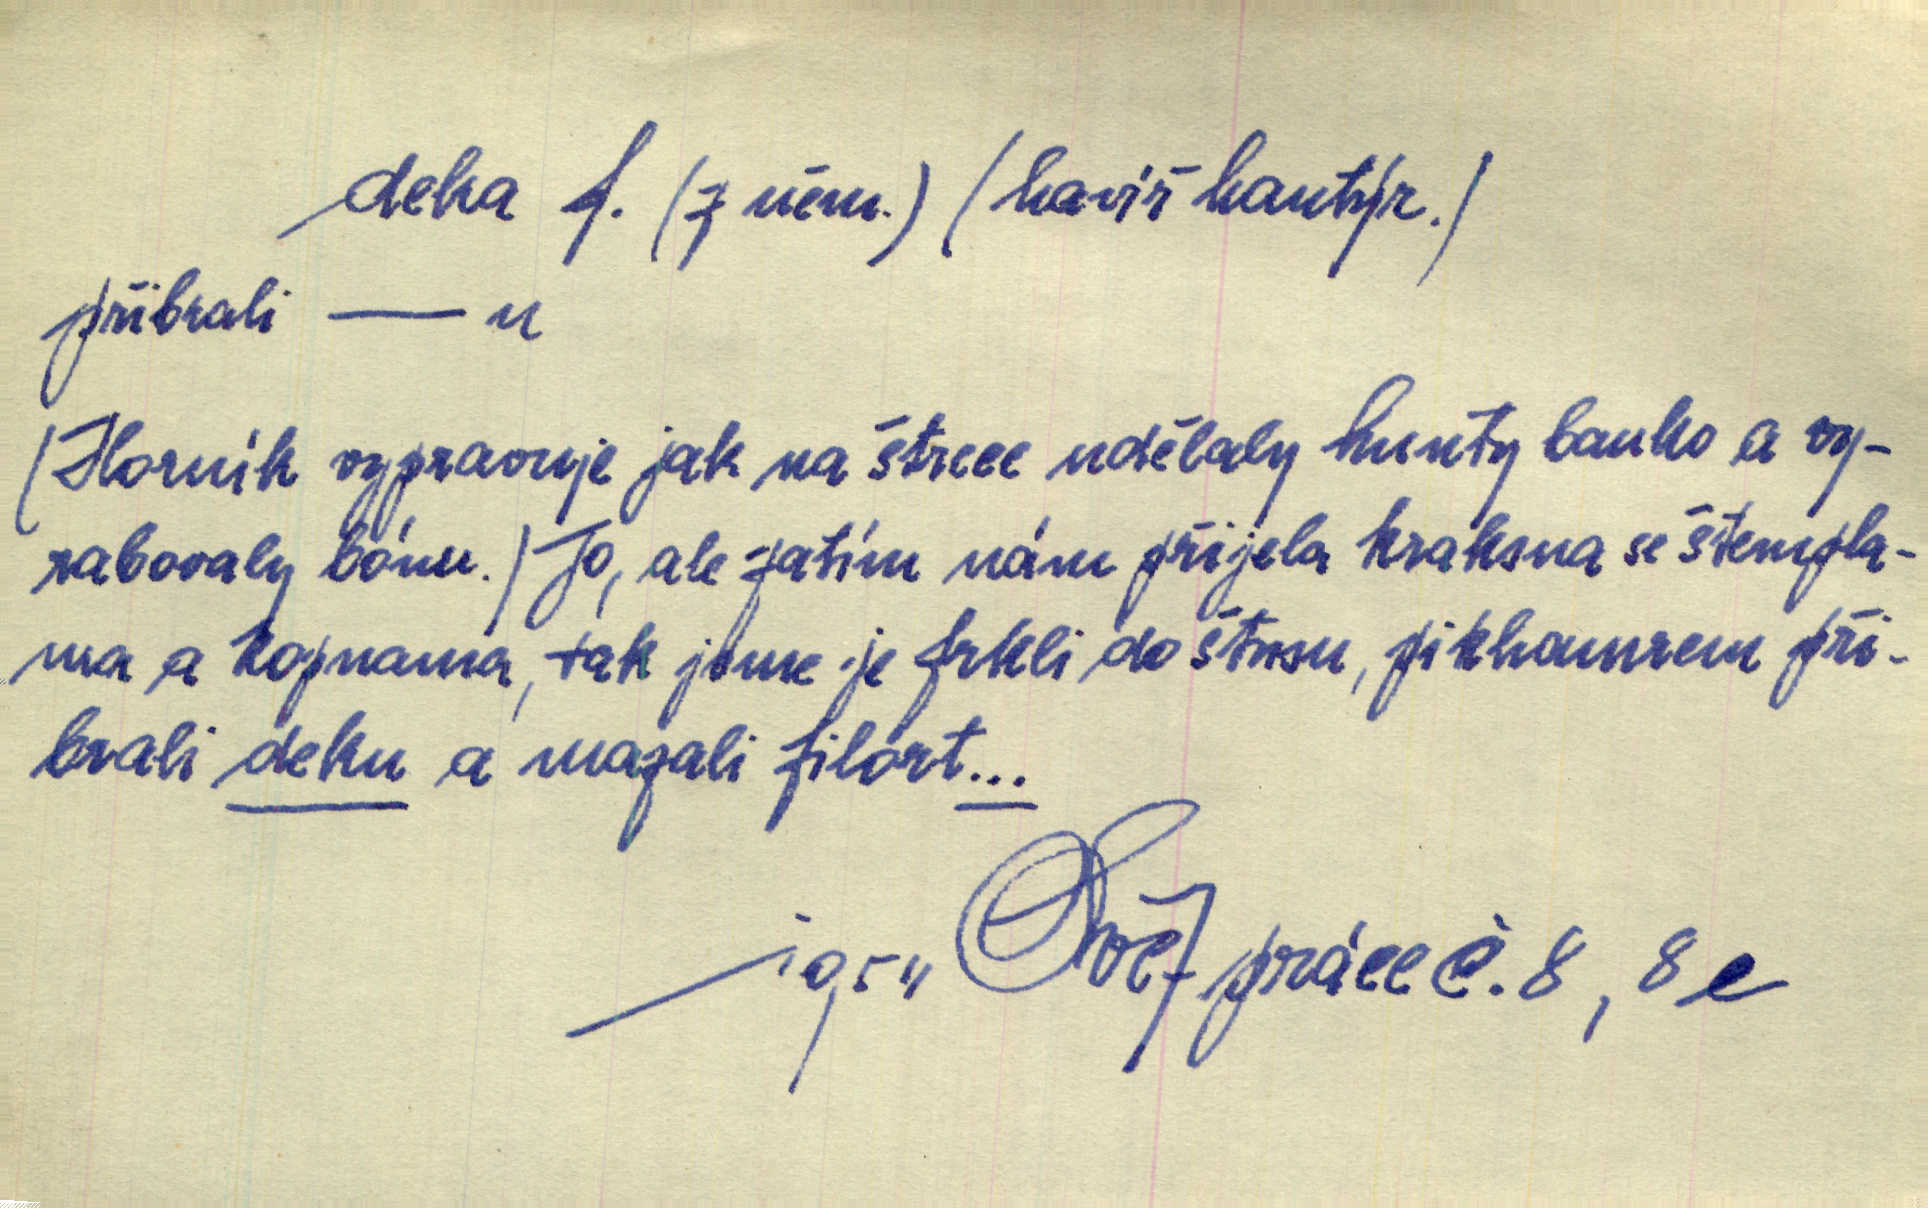 deka f. (z něm.) (havíř hantýr.)
přibrali — u
(Horník vypravuje jak na štrece udělaly hunty banko a vy-
rabovaly bónu.) Jo, ale zatím nám přijela kraksna se štempla-
ma a kopnama, tak jsme je frkli do štosu, pikhamrem při-
brali deku a mazali filórt...
práce č. 8, 8 e